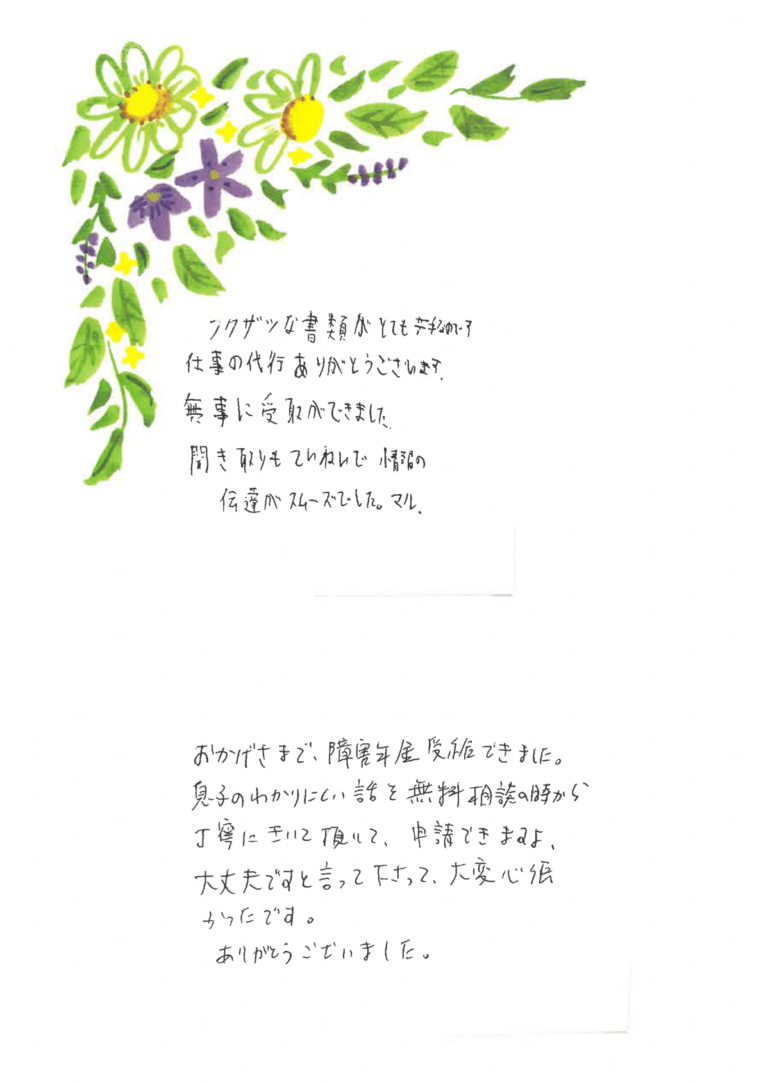 フクザツな書類がとても苦手なので
仕事の代行ありがとうございます。
無事に受取ができました。
聞き取りもていねいで 情報の
伝達がスムーズでした。マル。
おかげさまで、障害年金受給できました。
息子のわかりにくい話を無料相談の時から
丁寧にきいて頂いて、申請できますよ、
大丈夫ですと言って下さって、大変心強
かったです。
ありがとうございました。